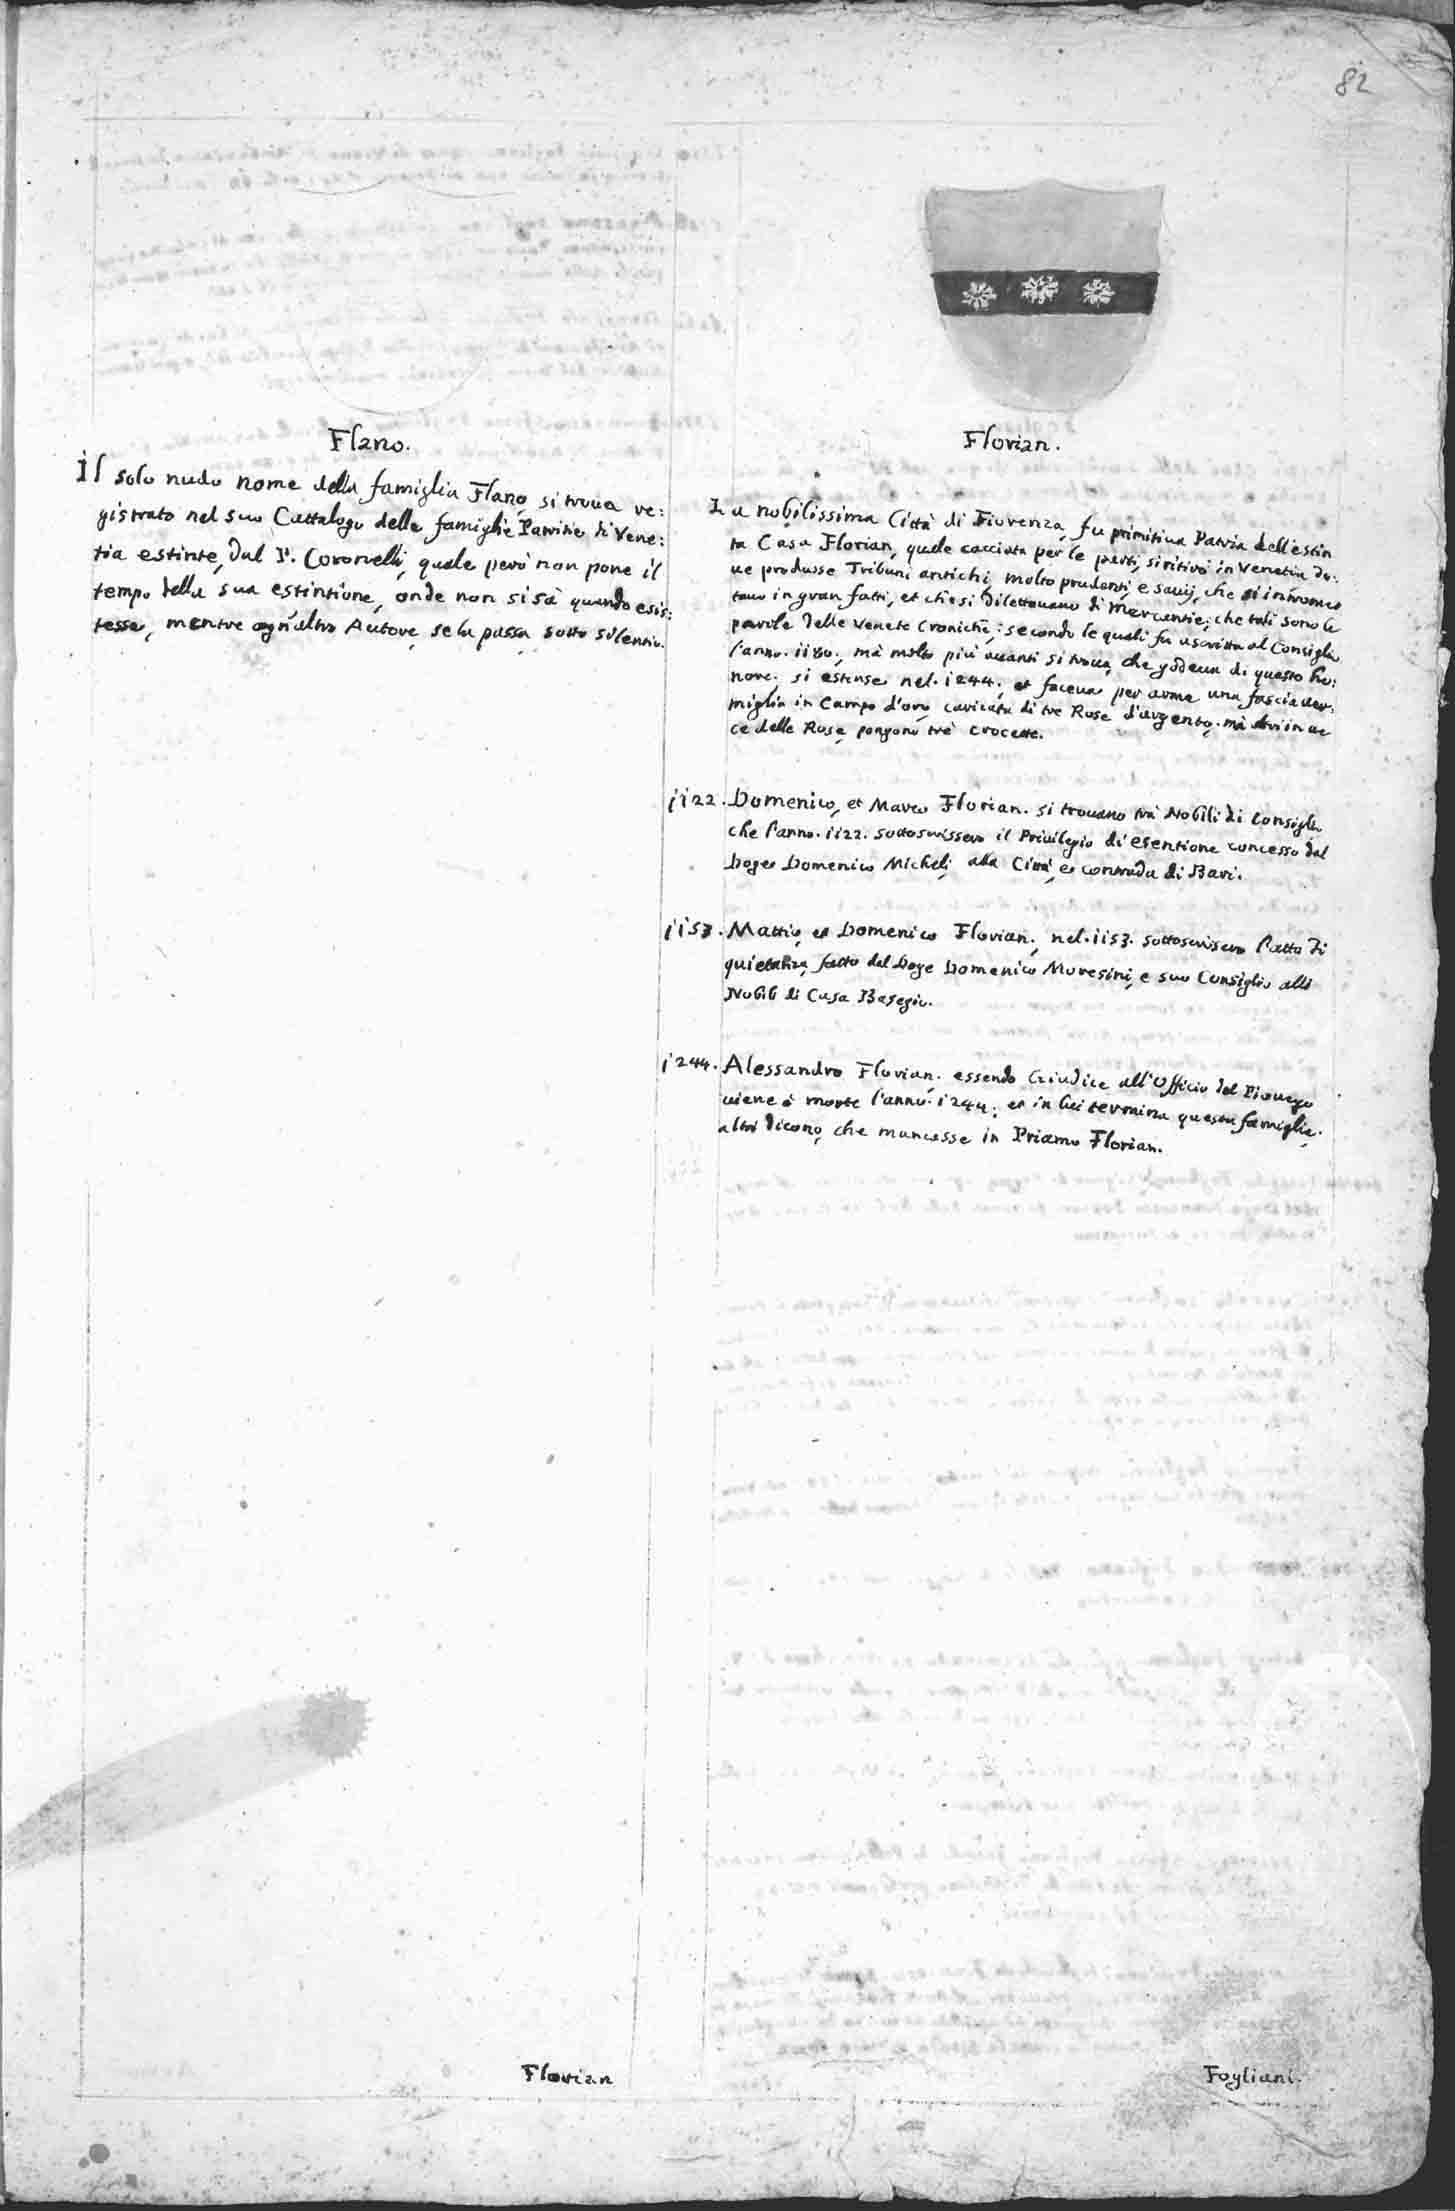 82
Flano.
Il solo nudo nome della famiglia Flano, si troua re:
gistrato nel suo Cattalogo delle famiglie Patritie di Vene:
tia estinte, dal P. Coronelli, quale però non pone il
tempo della sua estintione, onde non si sà quando esis:
tesse, mentre ogn'altro Autore, se la passa sotto silentio.
Florian
Florian.
La nobilissima Città di Fiorenza, fu primitiua Patria dell'estin
ta Casa Florian, quale cacciata per le parti, si ritirò in Venetia do:
ue produsse Tribuni antichi, molto prudenti, e sauij, che si intromet
teuano in gran fatti, et che si dilettauano di mercantie; che tali sono le
parole delle Venete Croniche: secondo le quali fu ascritta al Consiglio
l'anno. 1180., mà molto più auanti si troua, che godeua di questo ho:
nore. si estinse nel. 1244., et faceua per arma una fascia ver:
miglia in Campo d'oro, caricata di tre Rose d'argento, mà altri in ue
ce delle Rose, pongono trè crocette.
1122. Domenico, et Marco Florian. si trouano trà Nobili di Consiglio
che l'anno. 1122. sottoscrissero il Priuilegio di esentione concesso dal
Doge Domenico Micheli, alla Città, et contrada di Bari.
1153. Mattio, et Domenico Florian., nel. 1153. sottoscrissero l'atto di
quietanza, fatto dal Doge Domenico Moresini, e suo Consiglio alli
Nobili di Casa Basegio.
1244. Alessandro Florian. essendo Giudice all'Officio del Piouego
uiene à morte l'anno. 1244; et in lui termina questa famiglia.
altri dicono, che mancasse in Priamo Florian.
Fogliani.